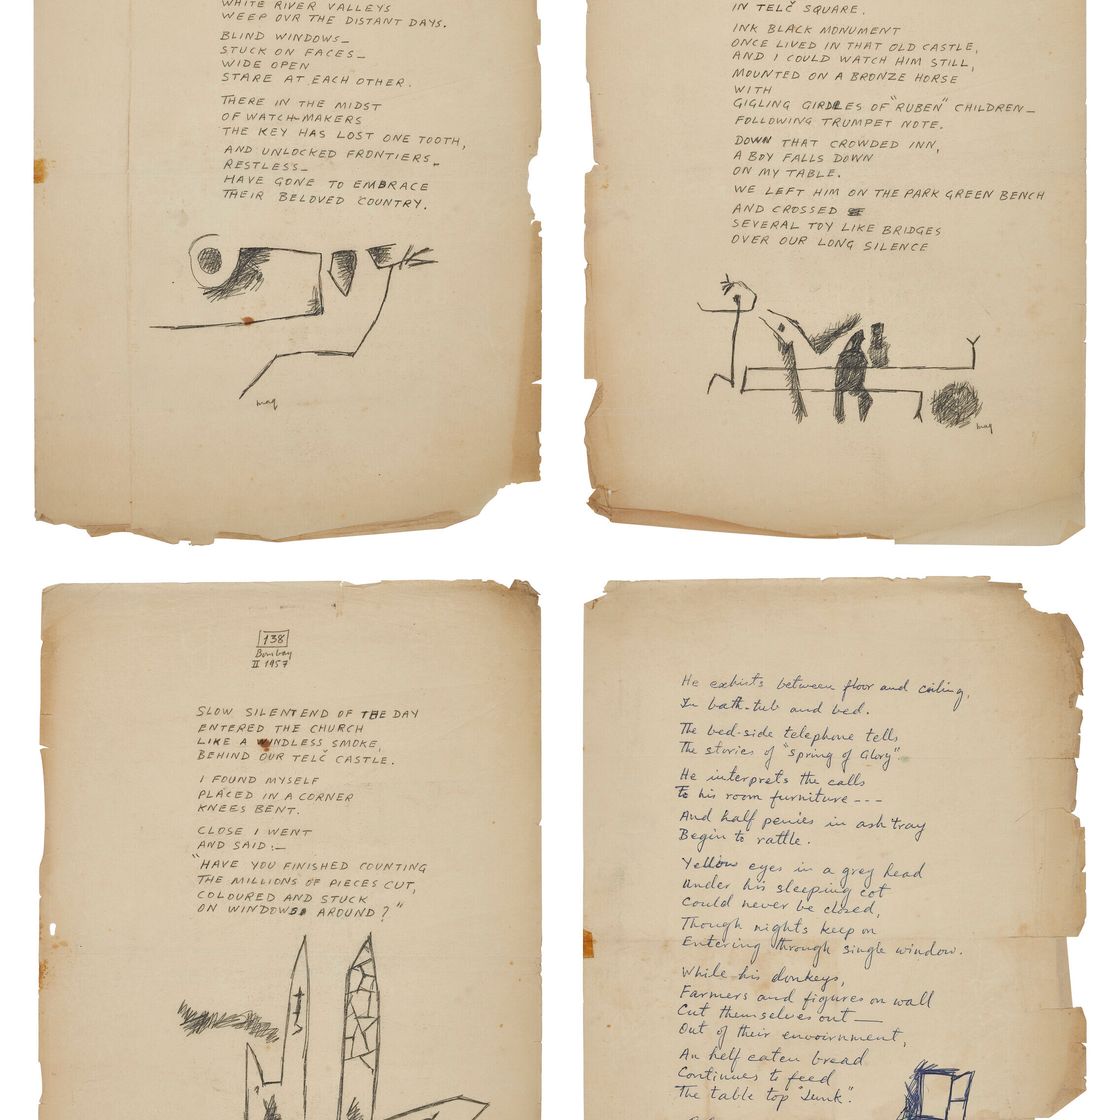 WHITE RIVER VALLEYS
WEEP OVR THE DISTANT DAYS.
BLIND WINDOWS_
STUCK ON FACES_
WIDE OPEN
STARE AT EACH OTHER.
THERE IN THE MIDST
OF WATCH-MAKERS
THE KEY HAS LOST ONE TOOTH,
AND UNLOCKED FRONTIERS_
RESTLESS_
HAVE GONE TO EMBRACE
THEIR BELOVED COUNTRY.
maq
IN TELČ SQUARE.
INK BLACK MONUMENT
ONCE LIVED IN THAT OLD CASTLE,
AND I COULD WATCH HIM STILL,
MOUNTED ON A BRONZE HORSE
WITH
GIGLING GIRDLES OF "RUBEN" CHILDREN_
FOLLOWING TRUMPET NOTE.
DOWN THAT CROWDED INN,
A BOY FALLS DOWN
ON MY TABLE.
WE LEFT HIM ON THE PARK GREEN BENCH
AND CROSSED
SEVERAL TOY LIKE BRIDGES
OVER OUR LONG SILENCE
maq
138
Bombay
II 1957
SLOW SILENT END OF THE DAY
ENTERED THE CHURCH
LIKE A WINDLESS SMOKE,
BEHIND OUR TELČ CASTLE.
I FOUND MYSELF
PLACED IN A CORNER
KNEES BENT.
CLOSE I WENT
AND SAID:—
"HAVE YOU FINISHED COUNTING
THE MILLIONS OF PIECES CUT,
COLOURED AND STUCK
ON WINDOWS AROUND?"
He exhists between floor and ceiling,
In bath-tub and bed.
The bed-side telephone tells
The stories of "Spring of Glory".
He interprets the calls
To his room furniture ---
And half penies in ash tray
Begin to rattle.
Yellow eyes in a grey head
Under his sleeping cot
Could never be closed,
Though nights keep on
Entering through single window.
While his donkeys,
Farmers and figures on wall
Cut themselves out —
Out of their envoirnment,
An helf eaten bread
Continues to feed
The table top "Junk".